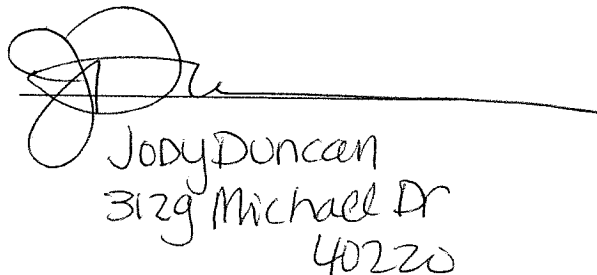 Jody Duncan
3129 Michael Dr
40220